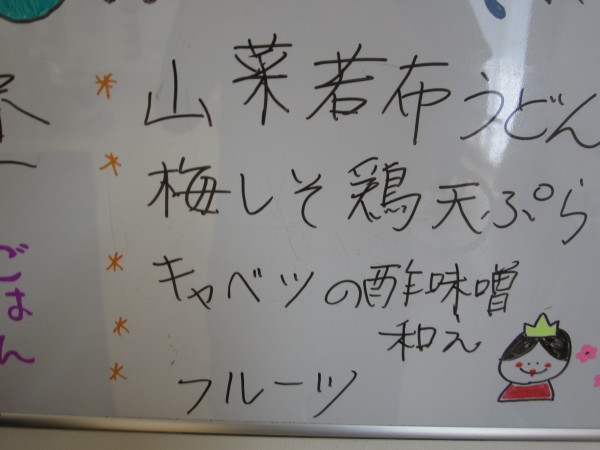 * 山菜若布うどん
* 梅しそ鶏天ぷら
* キャベツの酢味噌
和え
*
* フルーツ
ごはん